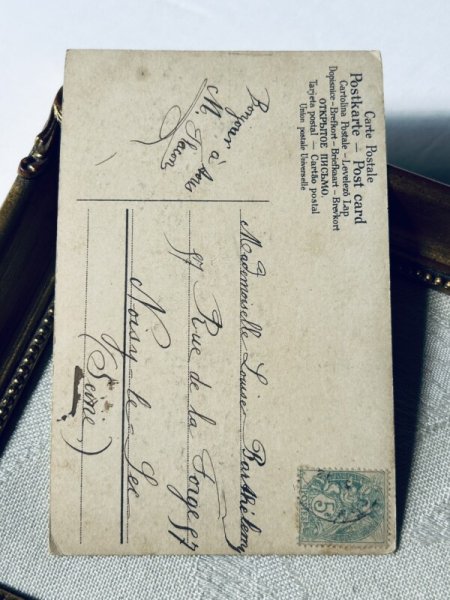 Carte Postale
Postkarte — Post card
Cartolina Postale — Levelező Lap
Dopisnice - Brefkort - Briefkaart - Brevkort
ОТКРЫТОЕ ПИСЬМО
Tarjeta postal — Cartão postal
Union postale Universelle
Bonjour à
M.
Mademoiselle Louise Barthélemy
87 Rue de la Forge 87
Noisy-le-Sec
(Seine)
5